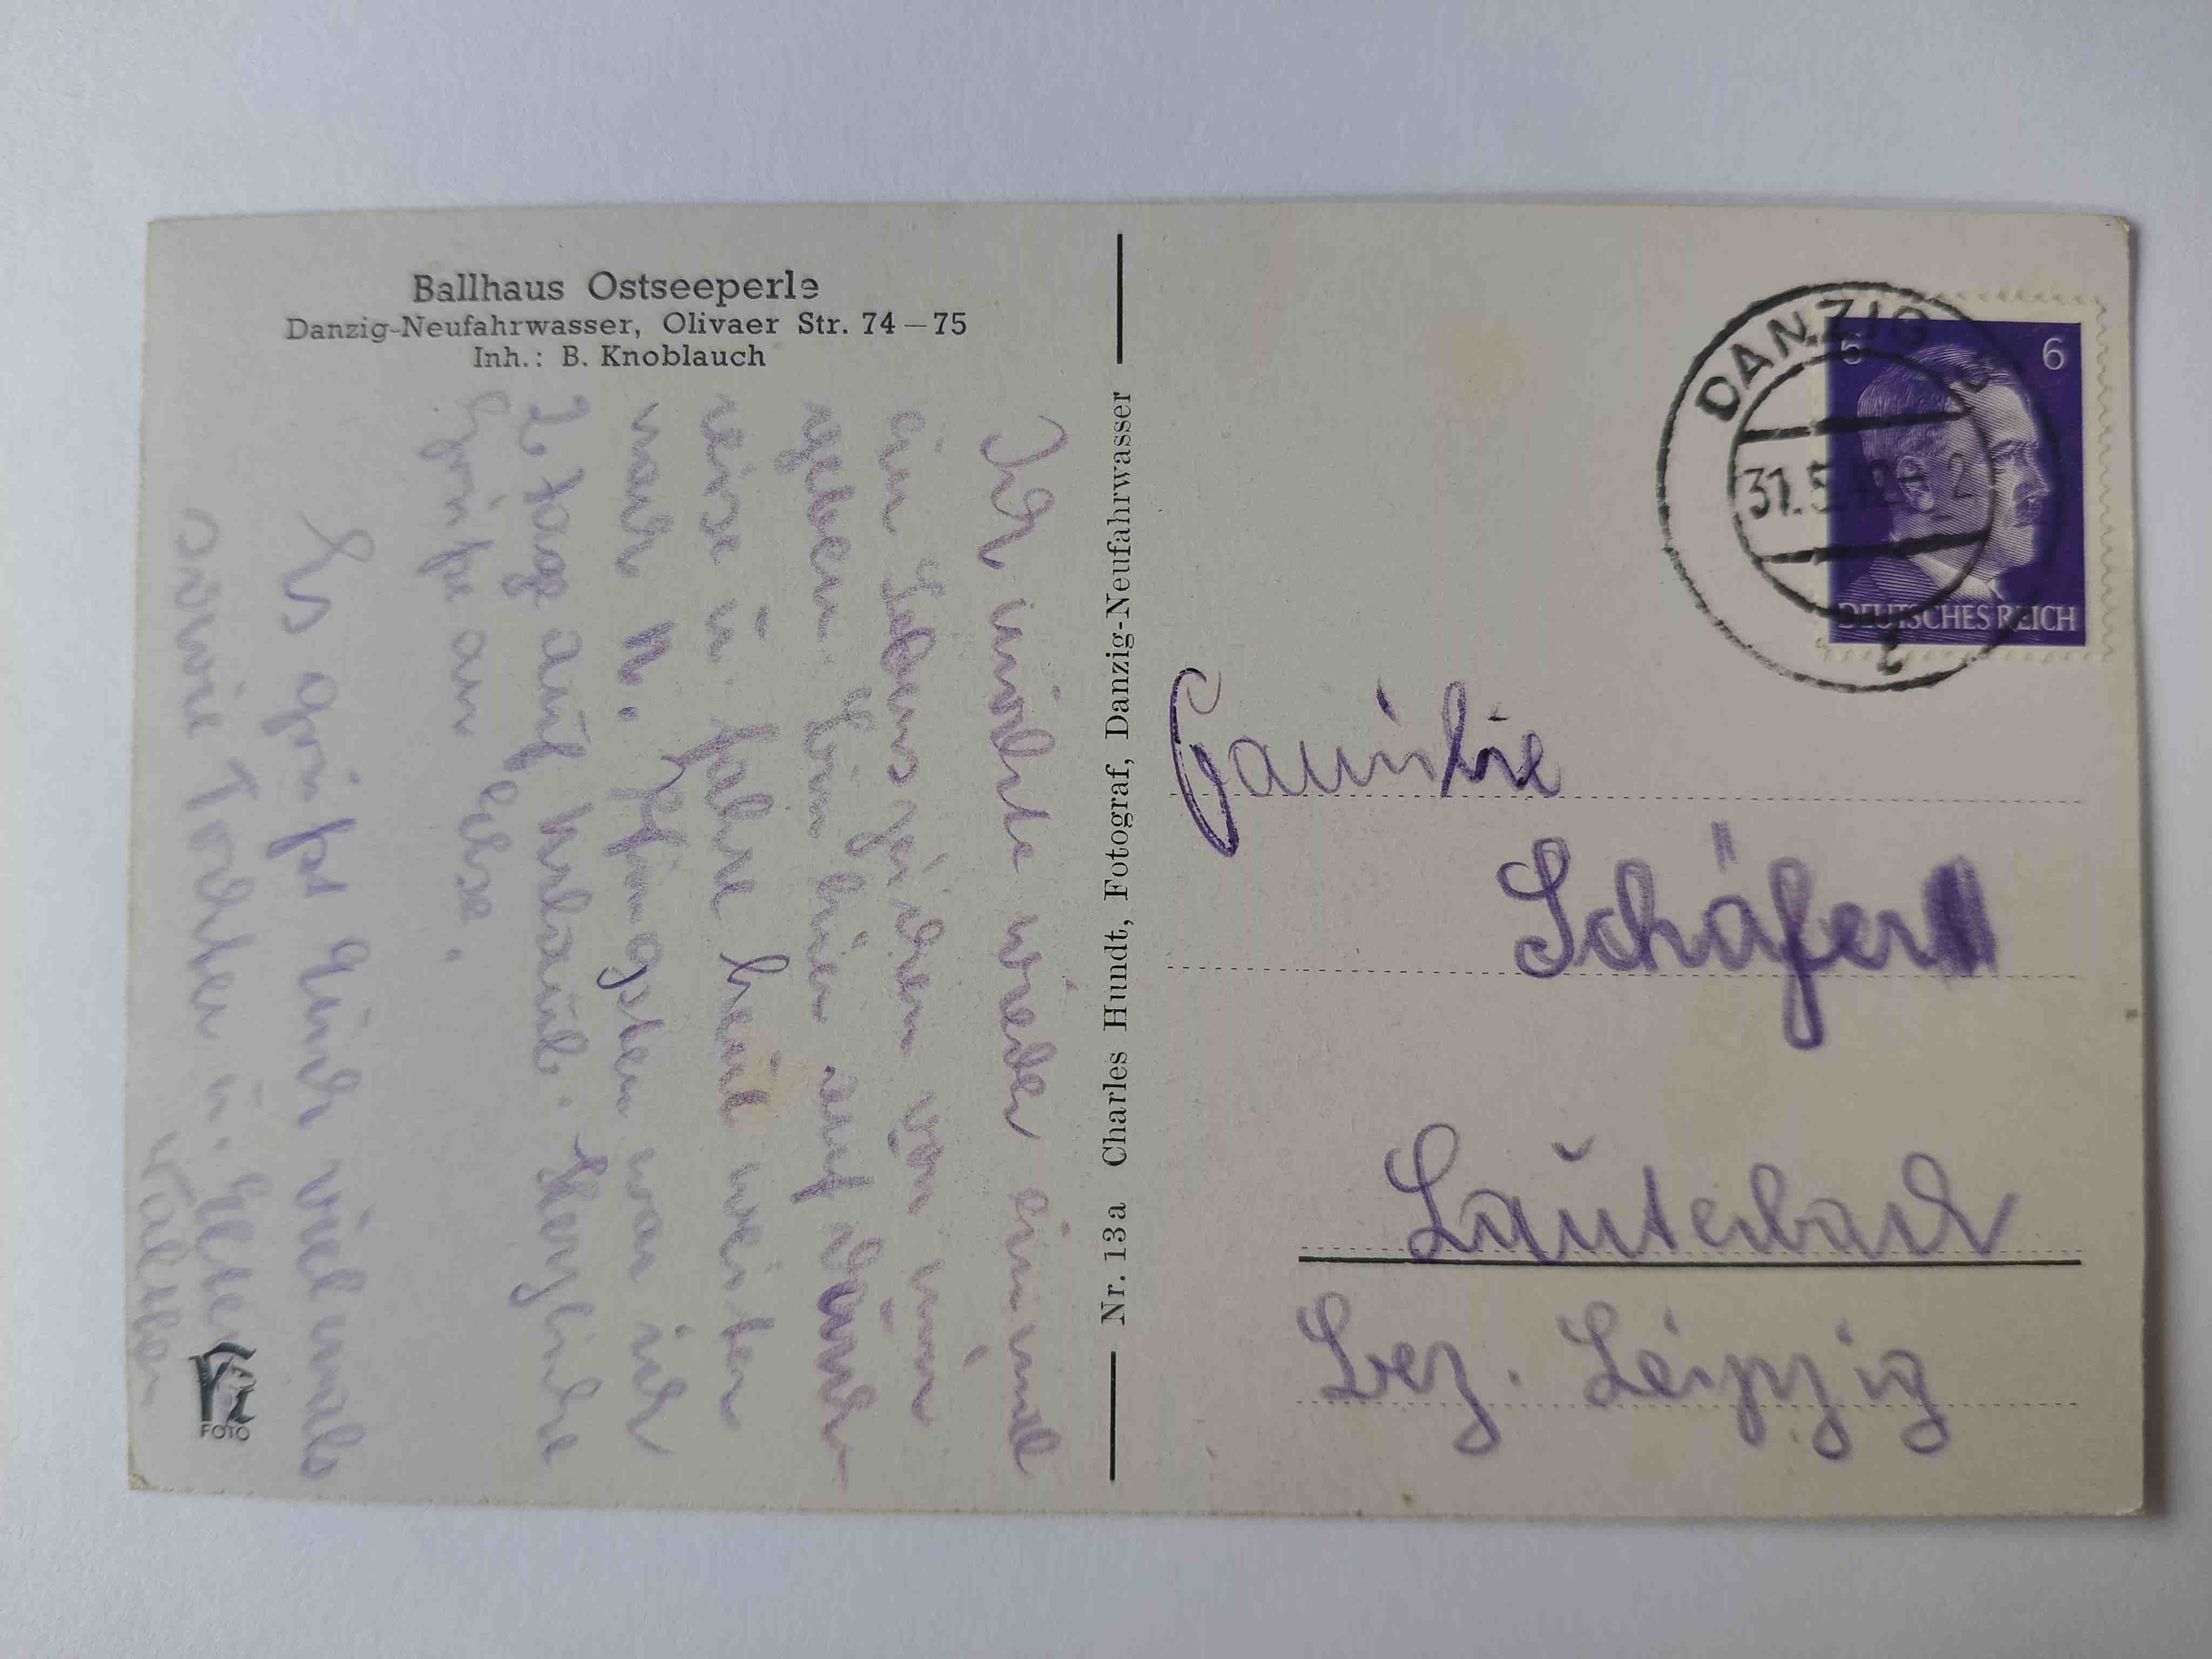 Ballhaus Ostseeperle
Danzig-Neufahrwasser, Olivaer Str. 74–75
Inh.: B. Knoblauch
Ich möchte wieder einmal
ein Lebenszeichen von mir
geben. Bin hier auf Durch-
reise u. fahre heut weiter
nach N. Pfingsten war ich
2 Tage auf Urlaub. Herzliche
Grüße an
Es grüßt Euch vielmals
sowie Tochter u.
Nr. 13a Charles Hundt, Fotograf, Danzig-Neufahrwasser
FOTO
DANZIG 5
31.5.42
6 6
DEUTSCHES REICH
Familie
Schäfer
Lauterbach
Bez. Leipzig